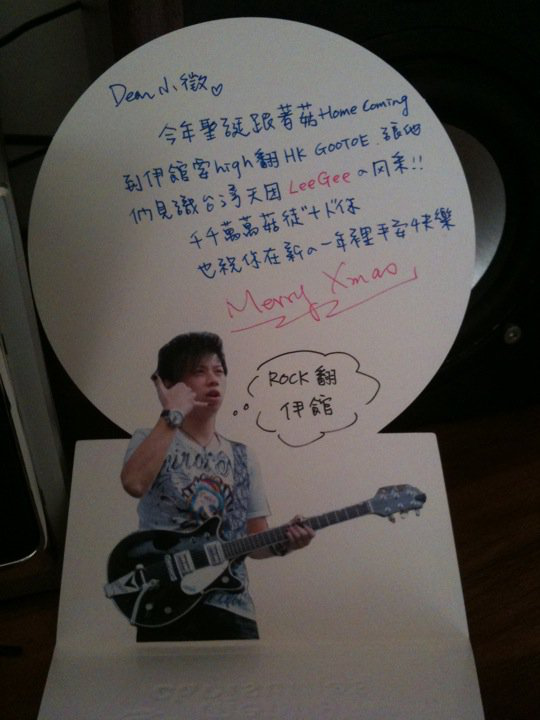 Dear 小徵♡
今年聖誕跟著菇Home Coming
到伊館要high翻HK GOOTOE.讓他
們見識台湾天团LeeGeeの风采!!
千千萬萬菇徒ㄉ十ド你
也祝你在新の一年裡平安快樂
Merry Xmas
ROCK翻
伊館